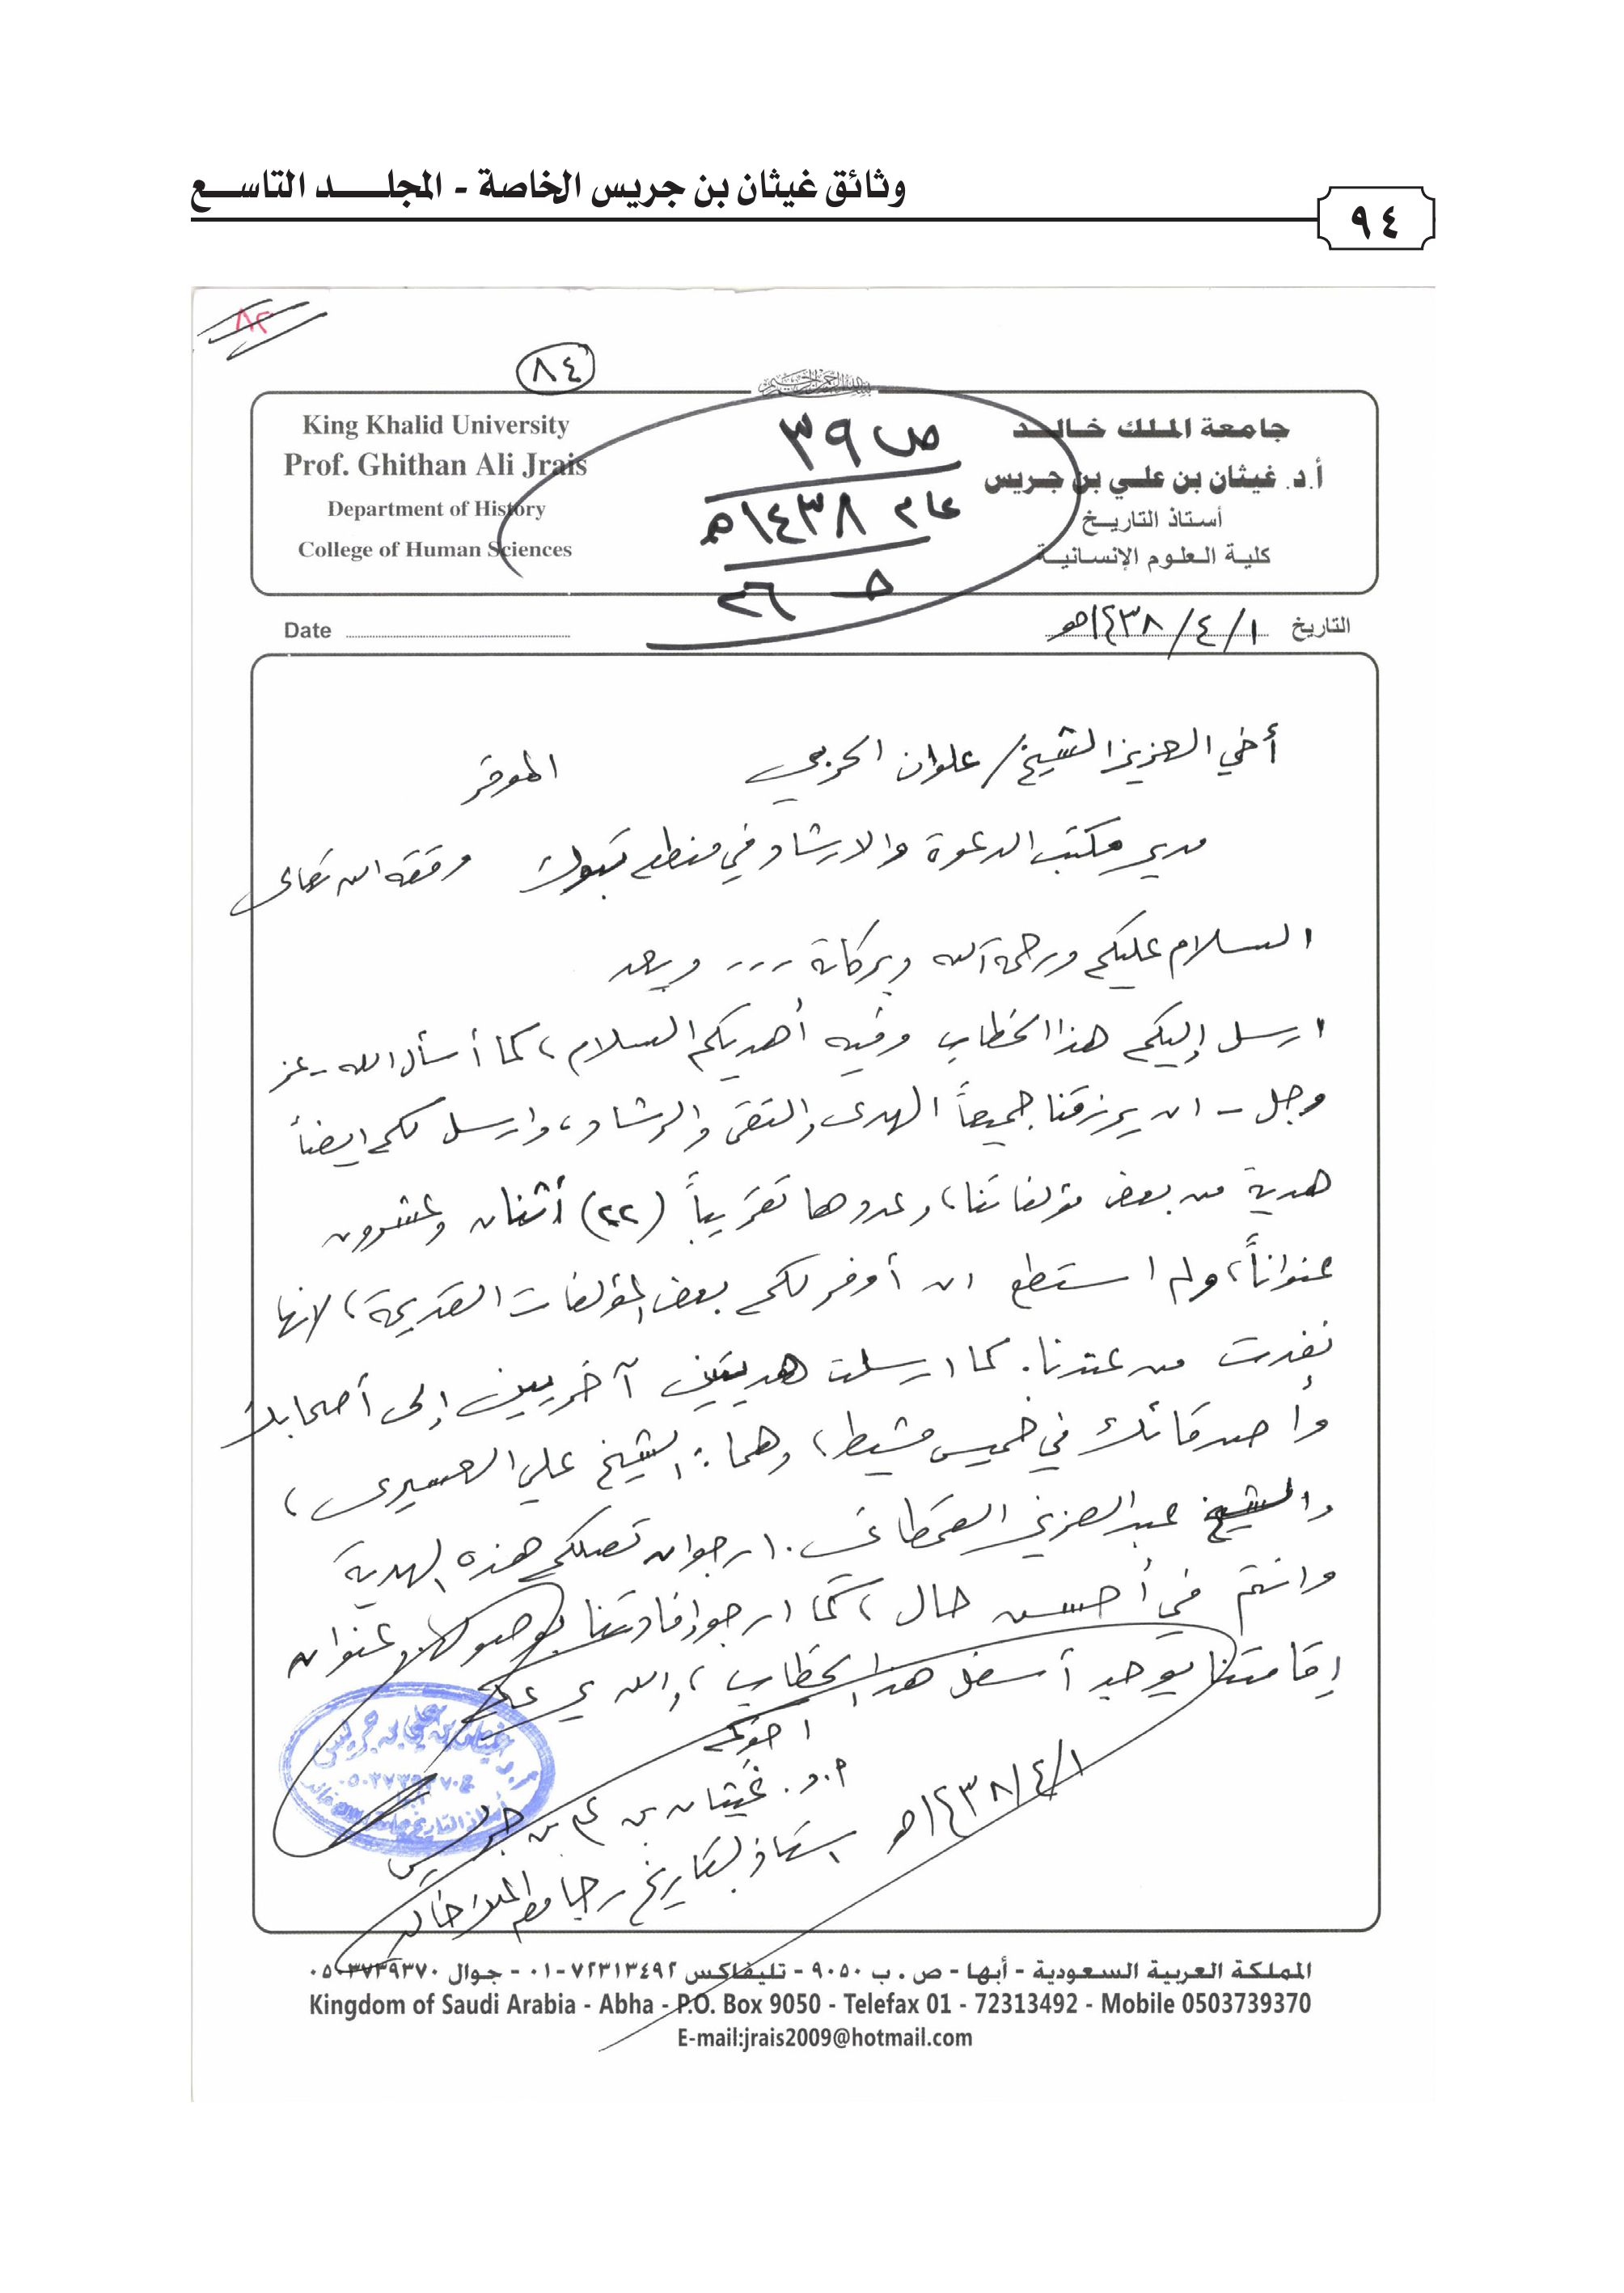 وثائق غيثان بن جريس الخاصة - المجلد التاسع
٩٤
٨٢
٨٤
King Khalid University
Prof. Ghithan Ali Jrais
Department of History
College of Human Sciences
جامعة الملك خالد
أ.د. غيثان بن علي بن جريس
أستاذ التاريخ
كلية العلوم الإنسانية
ص ٣٩
عام ١٤٣٨هـ
حـ ٢٦
Date
التاريخ ١/٤/١٤٣٨هـ
أخي العزيز الشيخ/ علوان الحربي الموقر
مدير مكتب الدعوة والارشاد في منطقة تبوك وفقه الله تعالى
السلام عليكم ورحمة الله وبركاته ... وبعد
ارسل إليكم هذا الخطاب وفيه أهديكم السلام، كما أسأل الله - عز
وجل - ان يرزقنا جميعاً الهدى والتقى والرشاد، وارسل لكم ايضاً
هدية من بعض مؤلفاتنا، وعددها تقريباً (٢٢) أثنان وعشرون
عنواناً، ولم استطع ان أوفر لكم بعض المؤلفات القديمة، لانها
نفدت من عندنا. كما ارسلت هديتين آخريين إلى أصحابك
وأصدقائك في خميس مشيط، وهما: الشيخ علي العسيري،
والشيخ عبدالعزيز القحطاني. ارجو ان تصلكم هذه الهدية
وانتم في أحسن حال، كما ارجو إفادتنا بوصولها، وعنوان
إقامتنا يوجد أسفل هذا الخطاب، والله يرعاكم
اخوكم
أ.د. غيثان بن علي بن جريس
استاذ التاريخ بجامعة الملك خالد
١/٤/١٤٣٨هـ
المملكة العربية السعودية - أبها - ص . ب ٩٠٥٠ - تليفاكس ٧٢٣١٣٤٩٢-٠١ - جوال ٠٥٠٣٧٣٩٣٧٠
Kingdom of Saudi Arabia - Abha - P.O. Box 9050 - Telefax 01 - 72313492 - Mobile 0503739370
E-mail:jrais2009@hotmail.com